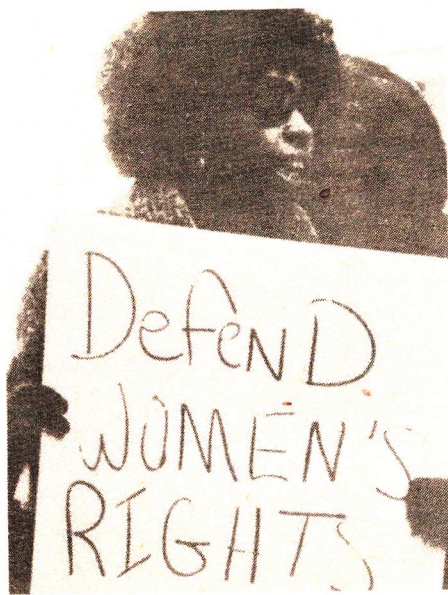 Defend
WOMEN'S
RIGHTS